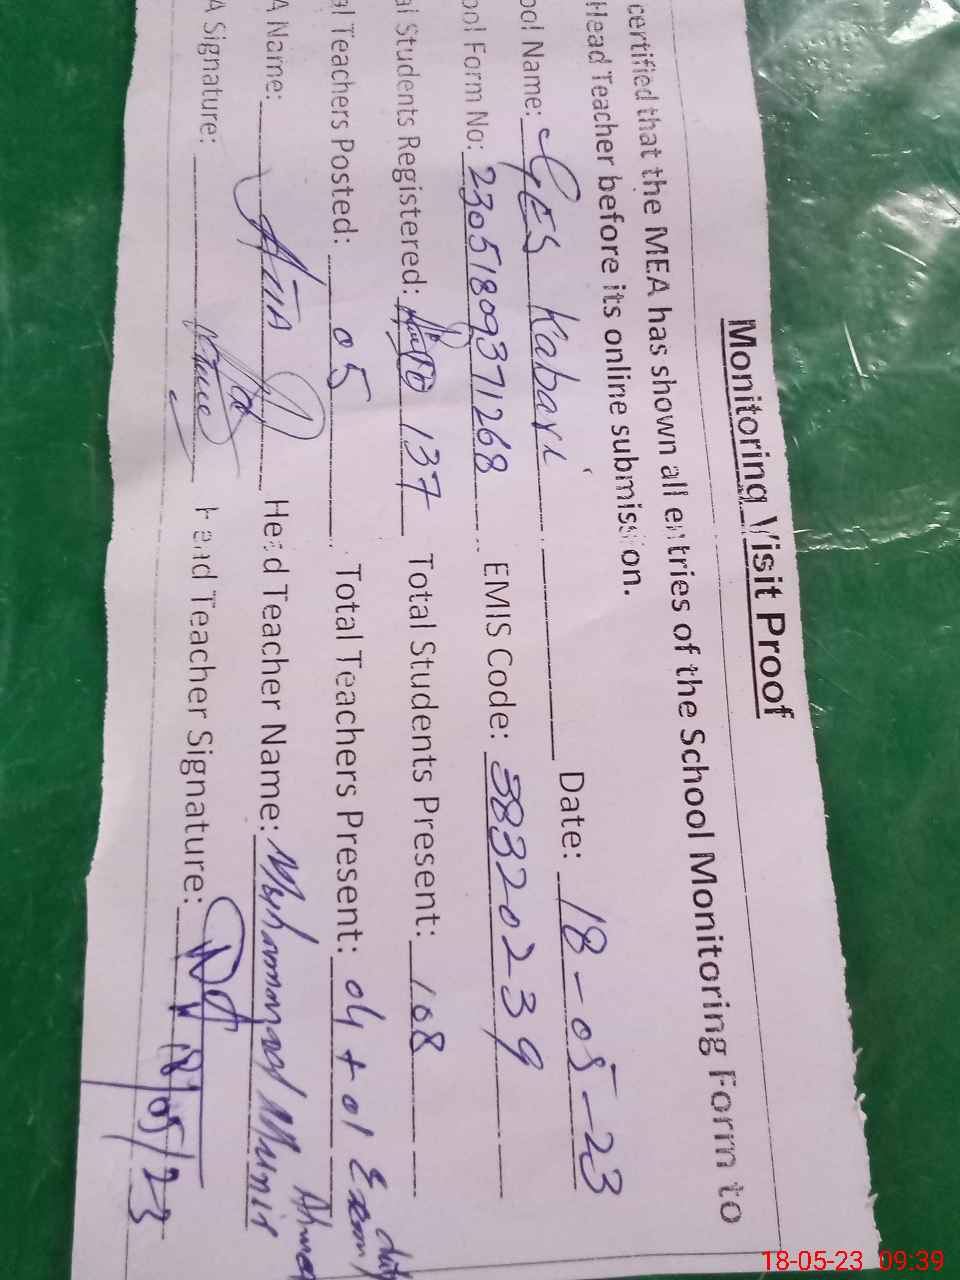 Monitoring Visit Proof
certified that the MEA has shown all entries of the School Monitoring Form to
Head Teacher before its online submission.
ool Name: GES Kabari Date: 18-05-23
ool Form No: 23051809371268 EMIS Code: 38320239
al Students Registered: 137 Total Students Present: 108
al Teachers Posted: 05 Total Teachers Present: 04 + 01 Exam duty
A Name: Head Teacher Name: Muhammad Munir Ahmed
A Signature: Head Teacher Signature: 18/05/23
18-05-23 09:39